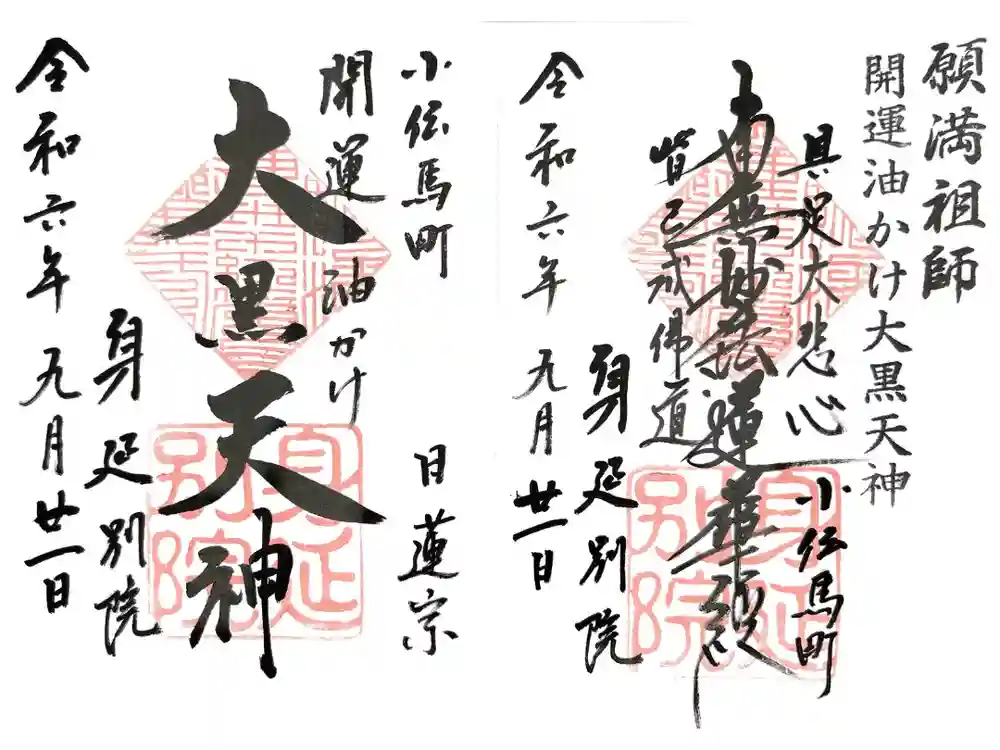 願満祖師
開運油かけ大黒天神
具足大悲心
小伝馬町
南無妙法蓮華経
皆已成佛道
身延別院
令和六年 九月廿一日
小伝馬町 日蓮宗
開運油かけ
大黒天神
身延別院
令和六年 九月廿一日
身延別院
身延別院